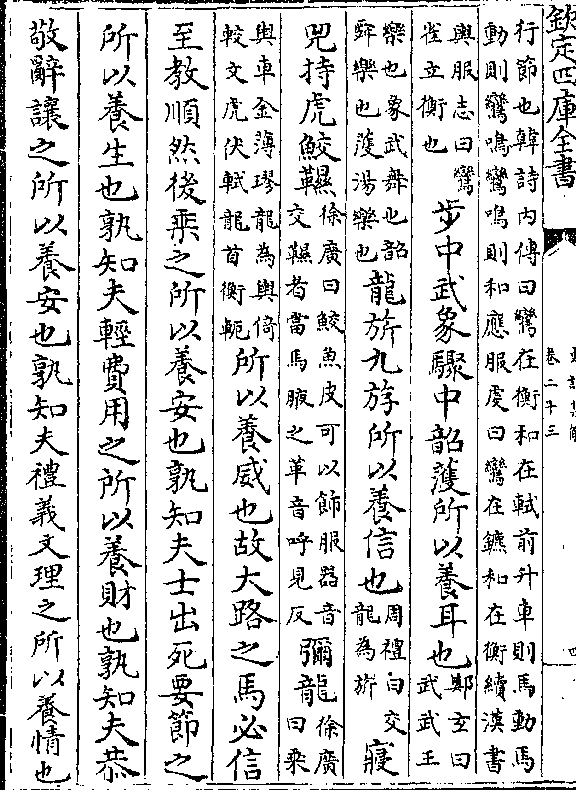 欽定四庫全書
卷二十三
四
行節也韓詩内傳曰鸞在衡和在軾前升車則馬動馬
動則鸞鳴鸞鳴則和應服虔曰鸞在鑣和在衡續漢書
輿服志曰鸞
雀立衡也
步中武象驟中韶濩所以養耳也
鄭玄曰
武武王
樂也象武舞也韶
舜樂也濩湯樂也
龍旂九斿所以養信也
周禮曰交
龍為旂
寢
兕持虎鮫韅
徐廣曰鮫魚皮可以飾服器音
交韅者當馬腋之革音呼見反
彌龍
徐廣
曰乘
輿車金薄璆龍為輿倚
較文虎伏軾龍首衡軛
所以養威也故大路之馬必信
至教順然後乗之所以養安也孰知夫士出死要節之
所以養生也孰知夫輕費用之所以養財也孰知夫恭
敬辭讓之所以養安也孰知夫禮義文理之所以養情也